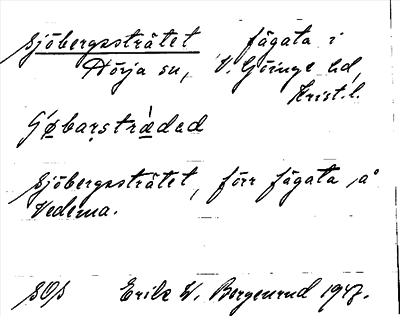 Sjöbergssträtet fägata i
Hörja sn, V. Göinge hd,
Krist.l.
Sjöbergssträtet, förr fägata på
Vedema.
SOS Erik W. Bergenrud 1947.